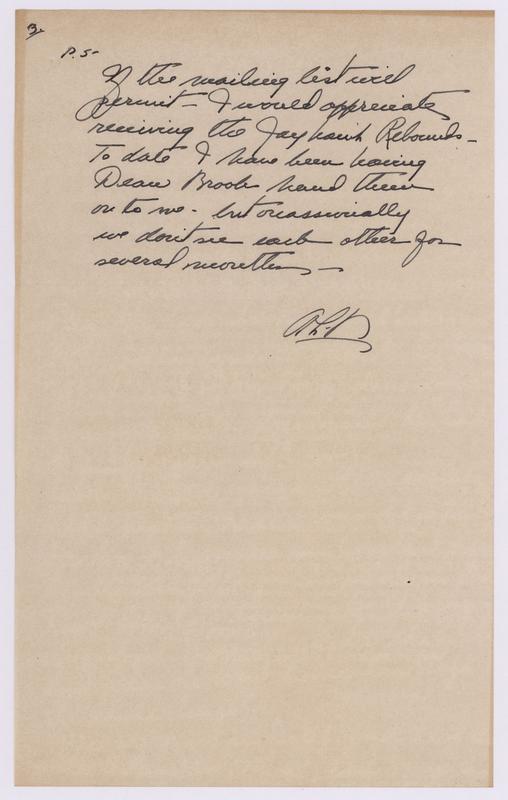 3
P.S-
If the mailing list will
permit - I would appreciate
receiving the Jayhawk Rebounds -
To date I have been having
Dean Brook hand them
on to me - but occassionally
we don't see each other for
several months -